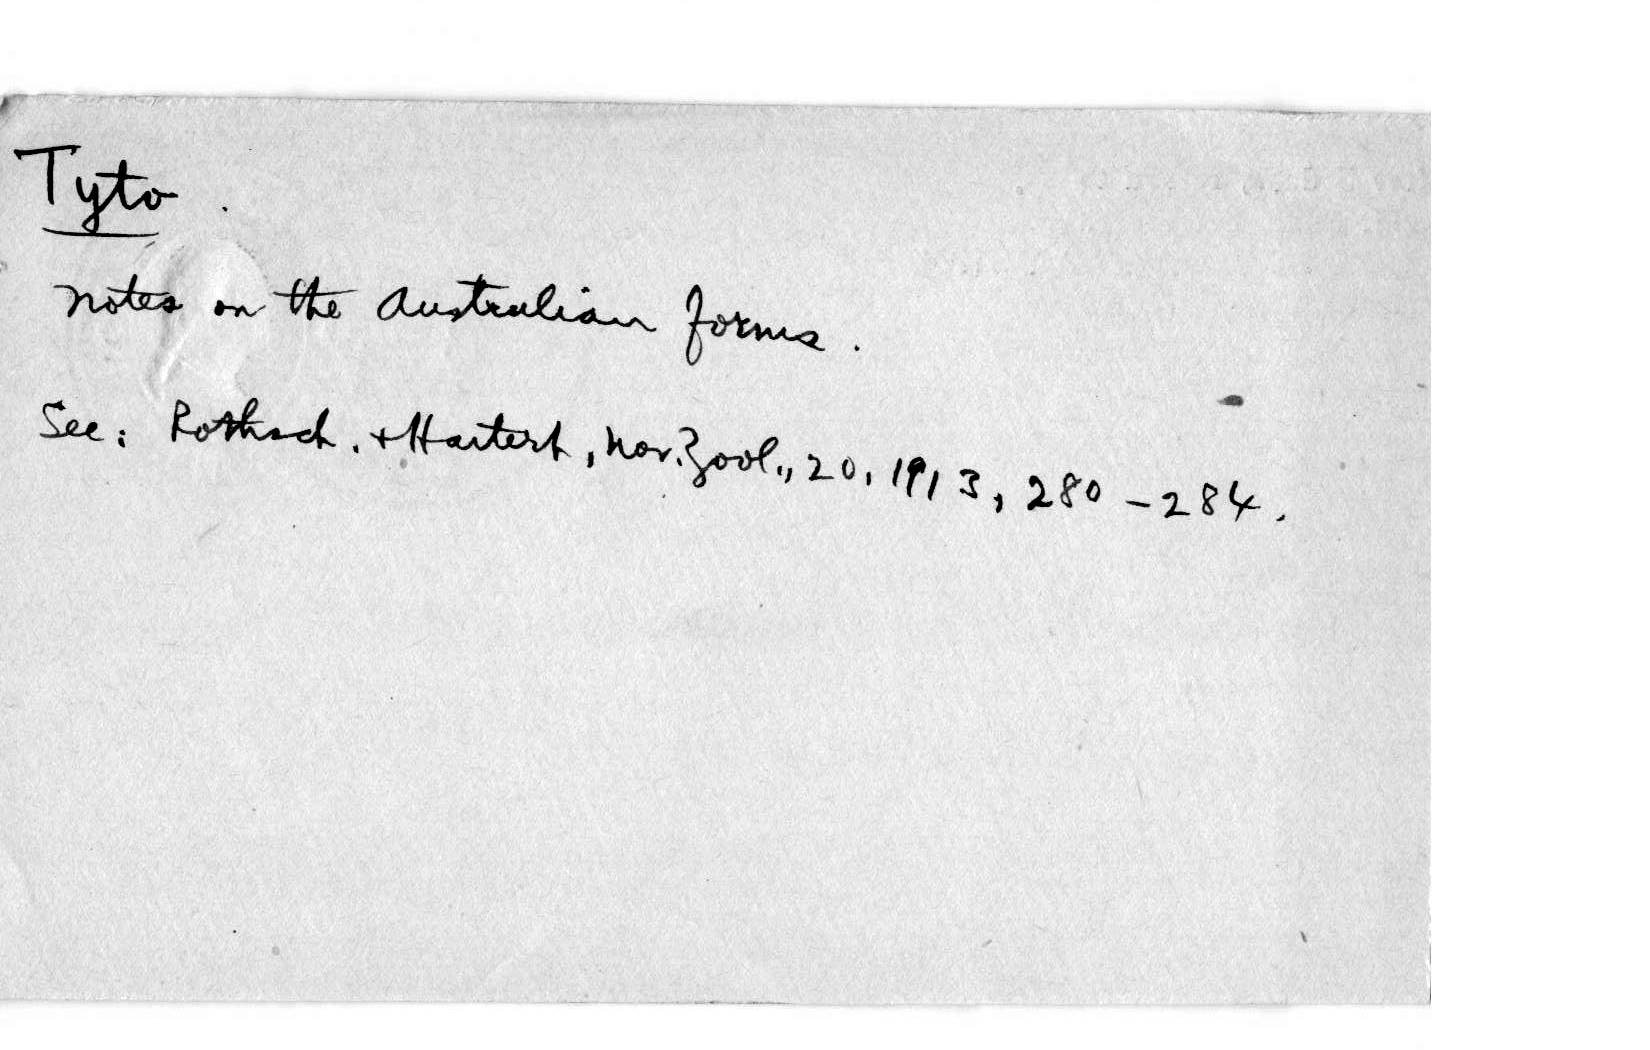 Tyto.
Notes on the Australian forms.
See: Rothsch. + Hartert, Nov. Zool., 20, 1913, 280-284.